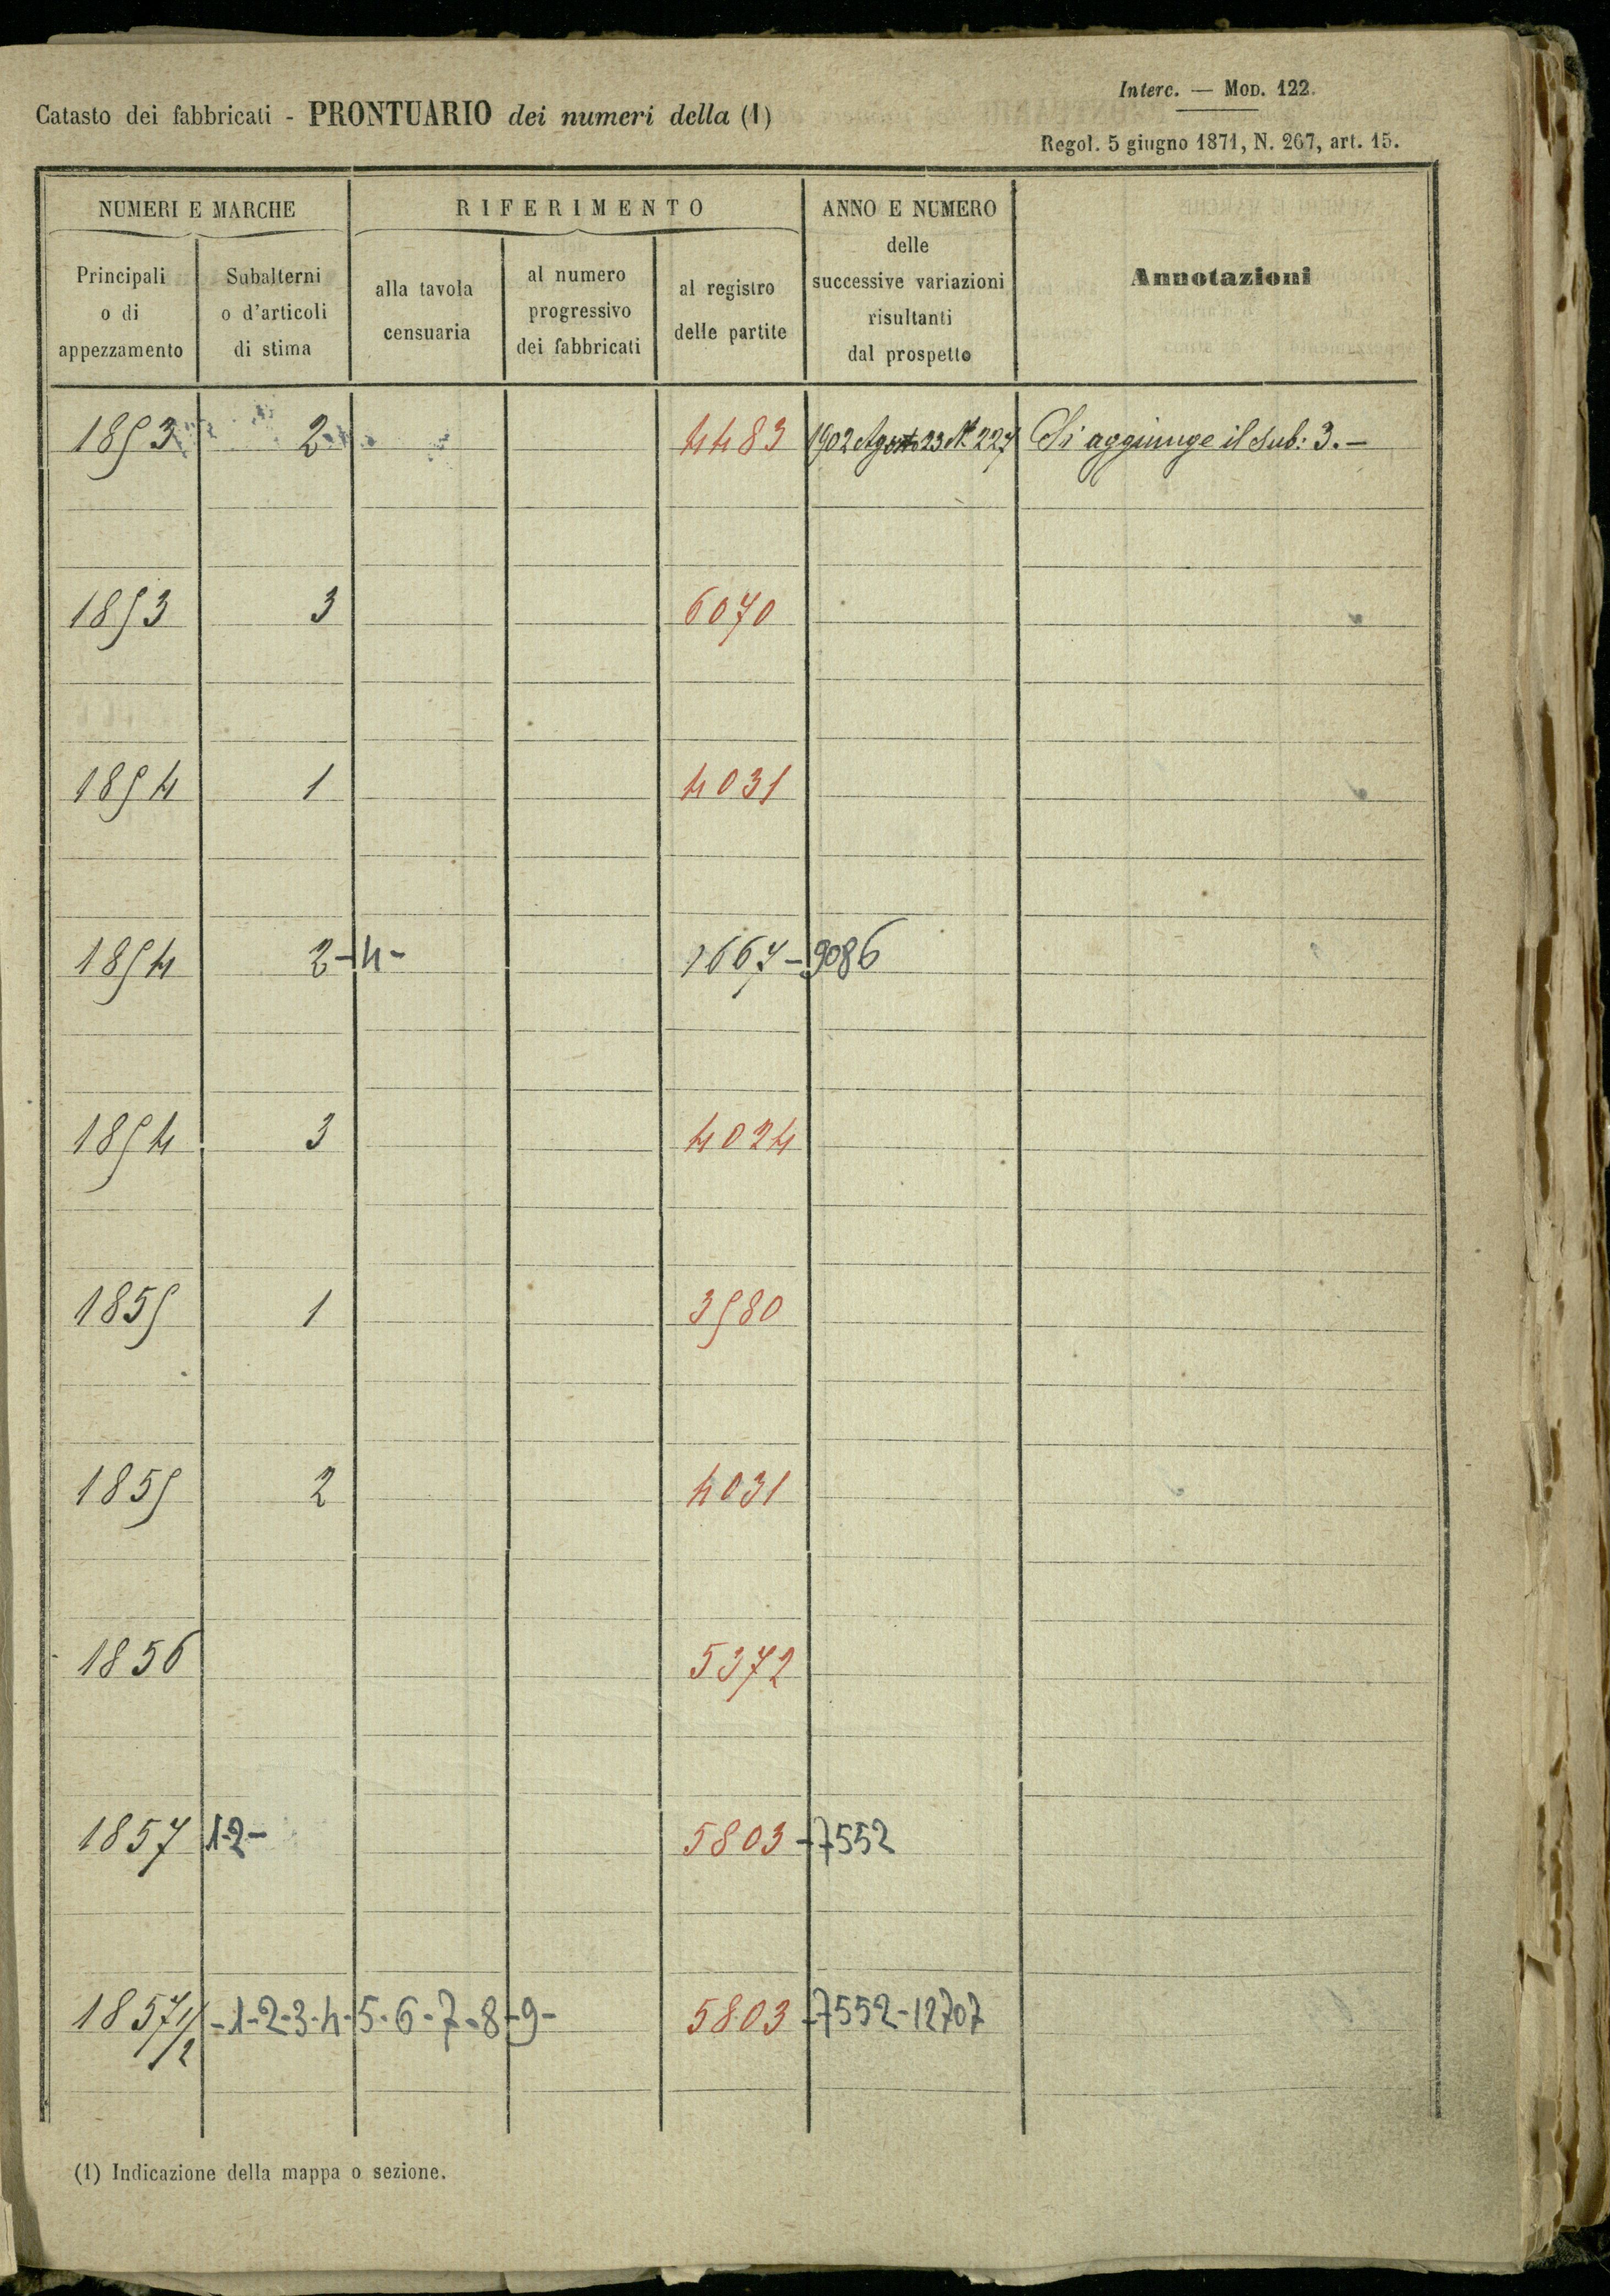 Interc. — Mod. 122.
Catasto dei fabbricati - PRONTUARIO dei numeri della (1)
Regol. 5 giugno 1871, N. 267, art. 15.
NUMERI E MARCHE RIFERIMENTO ANNO E NUMERO
delle
successive variazioni
risultanti
dal prospetto
Annotazioni
Principali
o di
appezzamento
Subalterni
o d'articoli
di stima
alla tavola
censuaria
al numero
progressivo
dei fabbricati
al registro
delle partite
1853 2 4483 1902 Agosto 23 N. 227 Si aggiunge il sub: 3. —
1853 3 6070
1854 1 4031
1854 2-4- 1667-9086
1854 3 4024
1855 1 3580
1855 2 4031
1856 5372
1857 1-2- 5803-7552
1857 1/2 -1-2-3-4-5-6-7-8-9- 5803-7552-12707
(1) Indicazione della mappa o sezione.